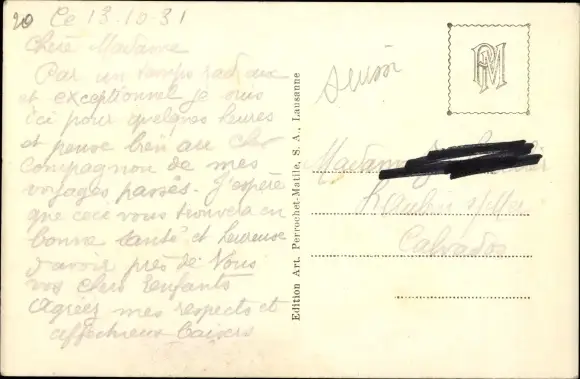 20
Ce 13-10-31
Chère Madame
Par un temps radieux
et exceptionnel je suis
ici pour quelques heures
et pense bien au cher
compagnon de mes
voyages passés. J'espère
que ceci vous trouvera en
bonne santé et heureuse
d'avoir près de Vous
vos chers enfants
Agréez mes respects et
affectueux baisers
Edition Art. Perrochet-Matile, S. A., Lausanne
PM
Madame
s/Mer
Calvados